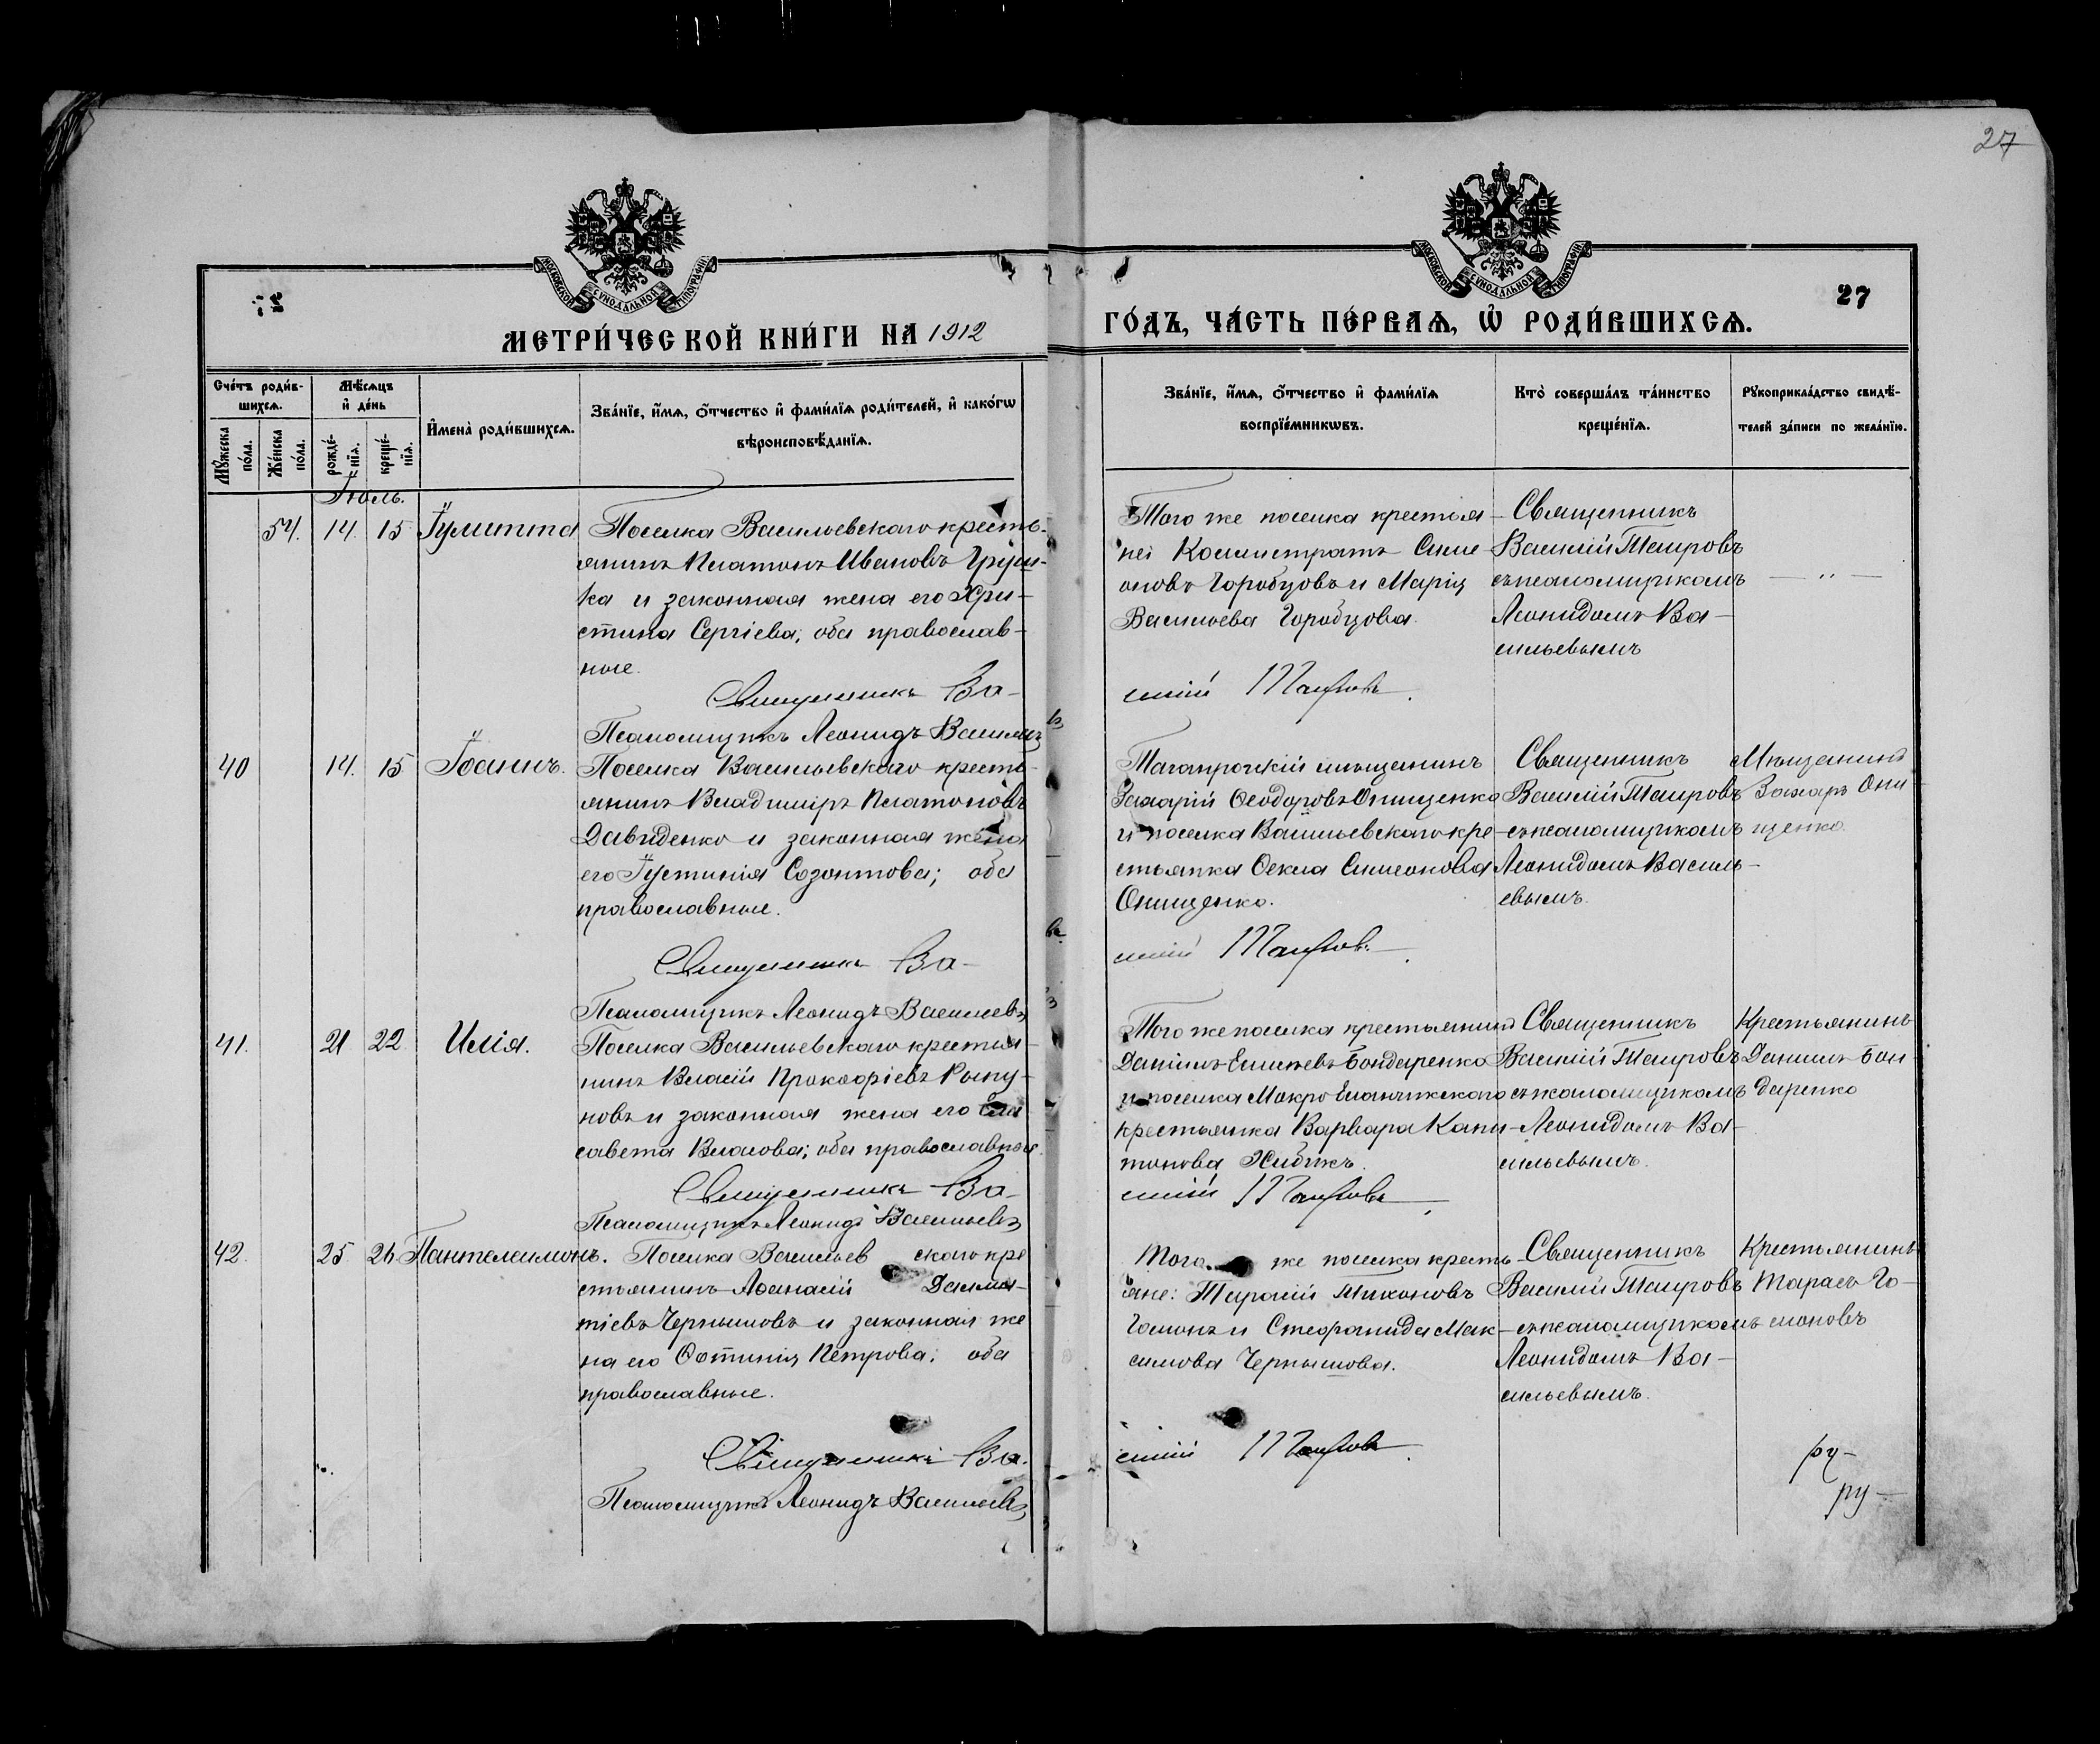 27
МОСКОВСКОЙ СѴНОДАЛЬНОЙ ТИПОГРАФІИ
МОСКОВСКОЙ СѴНОДАЛЬНОЙ ТИПОГРАФІИ
27
МЕТРИ́ЧЕСКОЙ КНИ́ГИ НА 1912
ГО́ДЪ, ЧА́СТЬ ПЕ́РВАѦ, Ѽ РОДИ́ВШИХСѦ.
Сче́тъ роди́в-
шихсѧ.
Мꙋ́жеска по́ла.
Же́нска по́ла.
Мѣ́сѧцъ
и҆ де́нь
рожде́-нїѧ.
креще́-нїѧ.
И҆мена̀ роди́вшихсѧ.
Зва́нїе, и҆́мѧ, ѻ҆́тчество и҆ фами́лїѧ роди́телей, и҆ како́гѡ
вѣроисповѣ́данїѧ.
Зва́нїе, и҆́мѧ, ѻ҆́тчество и҆ фами́лїѧ
воспрїе́мникѡвъ.
Кто̀ соверша́лъ та́инство
креще́нїѧ.
Рꙋкоприкла́дство свидѣ́-
телей за́писи по жела́нїю.
Іюль.
54. 14. 15 Іулитта
Поселка Васильевскаго кресть-
янинъ Платонъ Ивановъ Груш-
ка и законная жена его Хри-
стина Сергіева; оба православ-
ные.
Священникъ Ва-
Псаломщикъ Леонидъ Васильевъ
Того же поселка крестья-
не: Каллистратъ Симе
оновъ Горобцовъ и Марія
Васильева Горобцова.
силій Таировъ.
Священникъ
Василій Таировъ
съ псаломщикомъ
Леонидомъ Ва-
сильевымъ
— " —
40 14. 15 Іоаннъ.
Поселка Васильевскаго кресть-
янинъ Владиміръ Платоновъ
Давиденко и законная жена
его Іустинія Созонтова; оба
православные.
Священникъ Ва-
Псаломщикъ Леонидъ Васильевъ
Таганрогскій мѣщанинъ
Захарій Ѳеодоровъ Онищенко
и поселка Васильевскаго кре-
стьянка Ѳекла Симеонова
Онищенко.
силій Таировъ.
Священникъ
Василій Таировъ
съ псаломщикомъ
Леонидомъ Василь-
евымъ.
Мѣщанинъ
Захаръ Они
щенко.
41. 21 22 Илія.
Поселка Васильевскаго крестья-
нинъ Власій Прокофіевъ
новъ и законная жена его Ели
савета Власова; оба православные.
Священникъ Ва-
Псаломщикъ Леонидъ Васильевъ
Того же поселка крестьянинъ
Даніилъ Бондаренко
и поселка Мокро Еланчикскаго
крестьянка Варвара Капи-
тонова
силій Таировъ.
Священникъ
Василій Таировъ
съ псаломщикомъ
Леонидомъ Ва-
сильевымъ.
Крестьянинъ
Данилъ Бон-
даренко
42. 25 26 Пантелеимонъ.
Поселка Васильев скаго кре
стьянинъ Аѳанасій Далма-
тіевъ Чернышовъ и законная же
на его Фотинія Петрова; оба
православные.
Священникъ Ва-
Псаломщикъ Леонидъ Васильевъ
Того же поселка кресть-
яне: Тарасій Никоновъ
Гомонъ и Стефанида Мак-
симова Чернышова.
силій Таировъ.
Священникъ
Василій Таировъ
съ псаломщикомъ
Леонидомъ Ва-
сильевымъ.
Крестьянинъ
Тарасъ Го-
моновъ
ру-
ру-